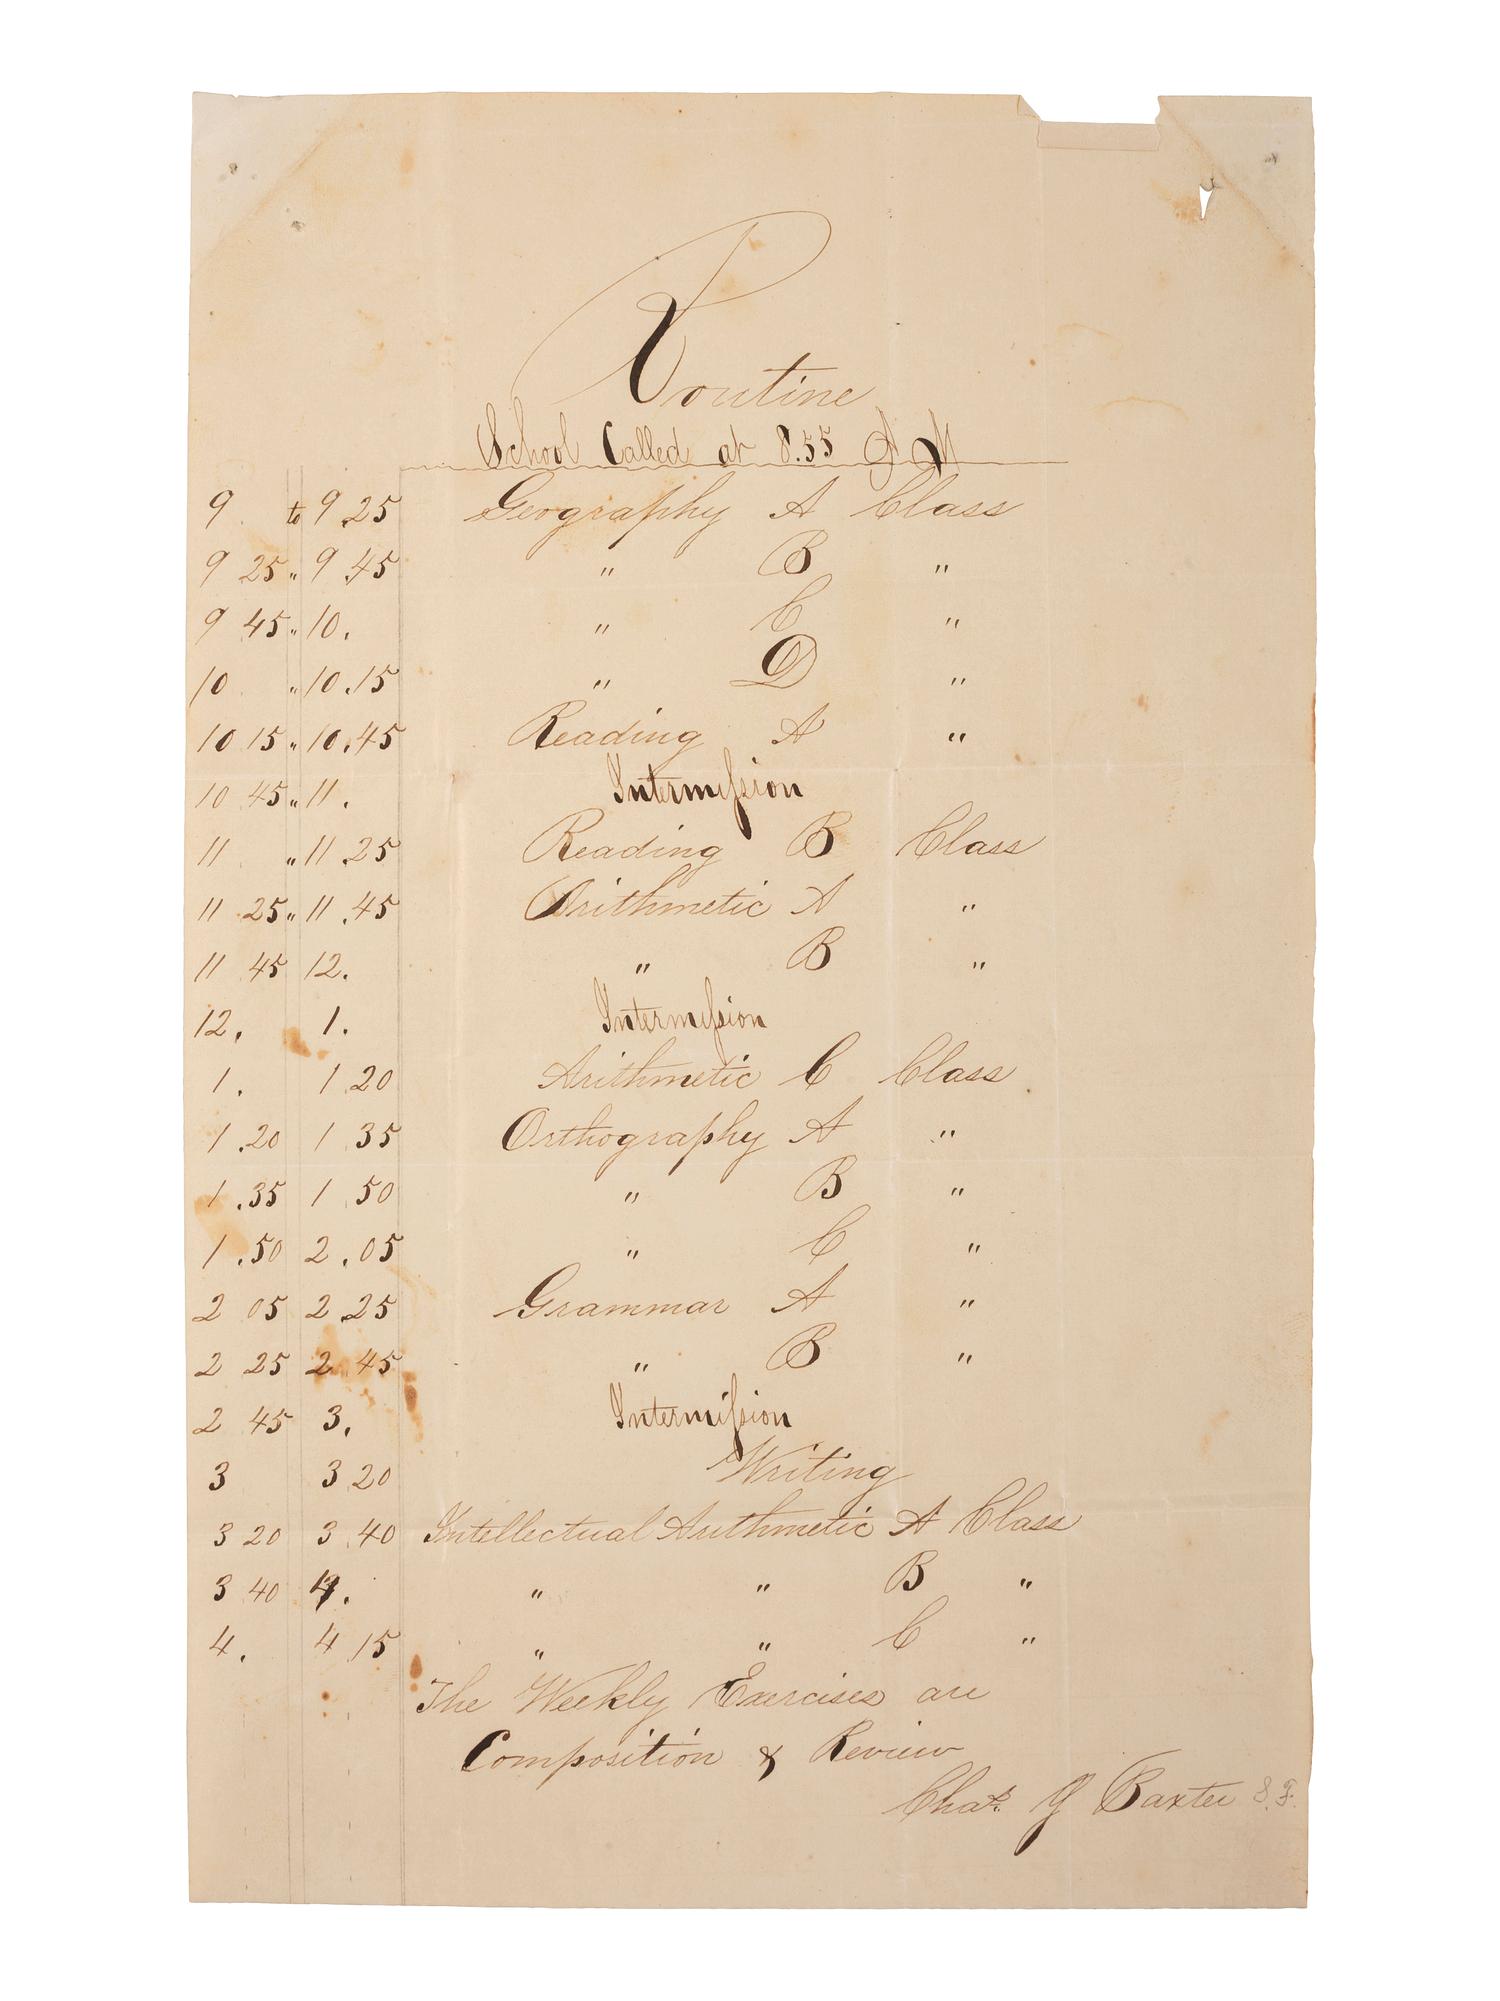 Routine
School Called at 8.55 A M
9 to 9 25 Geography A Class
9 25 " 9 45 " B "
9 45 " 10. " C "
10 " 10.15 " D "
10 15 " 10.45 Reading A "
10 45 " 11. Intermiſsion
11 " 11 25 Reading B Class
11 25 " 11.45 Arithmetic A "
11 45 12. " B "
12. 1. Intermiſsion
1. 1 20 Arithmetic C Class
1.20 1 35 Orthography A "
1.35 1 50 " B "
1.50 2.05 " C "
2 05 2 25 Grammar A "
2 25 2 45 " B "
2 45 3. Intermiſsion
3 3 20 Writing
3 20 3 40 Intellectual Arithmetic A Class
3 40 4. " " B "
4. 4 15 " " C "
The Weekly Exercises are
Composition & Review
Chas. G Baxter S.F.